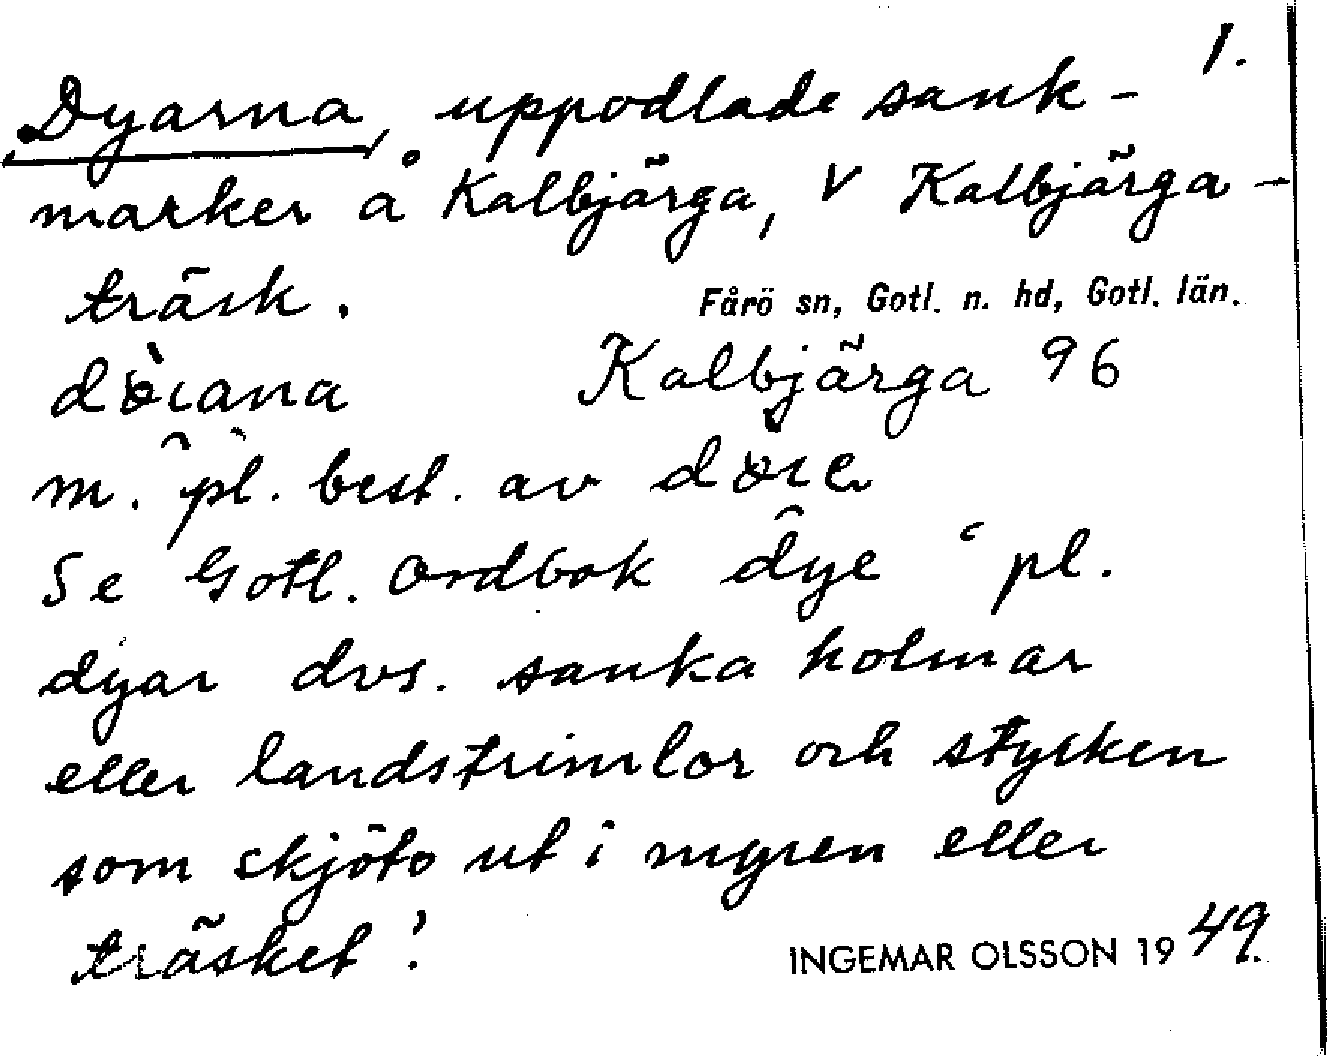 1.
Dyarna, uppodlade sank-
marker å Kalbjärga, V Kalbjärga-
träsk.
Fårö sn, Gotl. n. hd, Gotl. län.
Kalbjärga 96
m. pl. best. av
Se Gotl. Ordbok dye ‘pl.
dyar dvs. sanka holmar
eller landstrimlor och stycken
som skjöto ut i myren eller
träsket’.
INGEMAR OLSSON 1949.